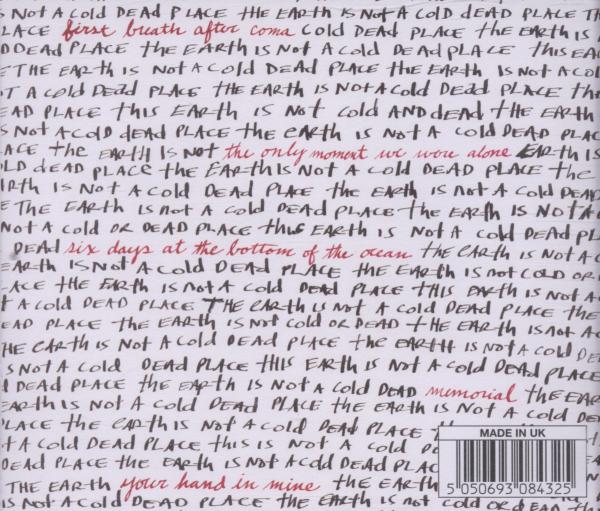 S NOT A COLD DEAD PLACE THE EARTH IS NOT A COLD DEAD PLACE TH
LACE first breath after coma COLD DEAD PLACE THE EARTH IS
D DEAD PLACE THE EARTH IS NOT A COLD DEAD PLACE THIS EA
THE EARTH IS NOT A COLD DEAD PLACE THE EARTH IS NOT A COL
T A COLD DEAD PLACE THE EARTH IS NOT A COLD DEAD PLACE TH
EAD PLACE THIS EARTH IS NOT COLD AND DEAD THE EARTH
S NOT A COLD DEAD PLACE THE EARTH IS NOT A COLD DEAD PLAC
ACE THE EARTH IS NOT the only moment we were alone EARTH IS
OLD DEAD PLACE THE EARTH IS NOT A COLD DEAD PLACE THE
ARTH IS NOT A COLD DEAD PLACE THE EARTH IS NOT A COLD DEAD
E THE EARTH IS NOT A COLD DEAD PLACE THE EARTH IS NOT A
NOT A COLD OR DEAD PLACE THIS EARTH IS NOT A COLD DEAD PL
DEAD six days at the bottom of the ocean THE EARTH IS NOT A C
EARTH IS NOT A COLD DEAD PLACE THE EARTH IS NOT COLD OR
LACE THE EARTH IS NOT A COLD DEAD PLACE THIS EARTH IS NOT A
T A COLD DEAD PLACE THE EARTH IS NOT A COLD DEAD PLACE THE
EAD PLACE THE EARTH IS NOT COLD OR DEAD THE EARTH IS NOT A
HE EARTH IS NOT A COLD DEAD PLACE THE EARTH IS NOT A COLD DE
S NOT A COLD DEAD PLACE THIS EARTH IS NOT A COLD DEAD PLACE
D DEAD PLACE THE EARTH IS NOT A COLD DEAD memorial THE EAR
EARTH IS NOT A COLD DEAD PLACE THE EARTH IS NOT A COLD DE
LACE THE EARTH IS NOT A COLD DEAD PLACE THE EARTH
T A COLD DEAD PLACE THIS IS NOT A COLD D
DEAD PLACE THE EARTH IS NOT A COLD DEAD PLAC
THE EARTH your hand in mine THE EARTH
IS NOT A COLD DEAD PLACE THE EARTH IS NOT COLD OR DEAD THE
MADE IN UK
5 050693 084325